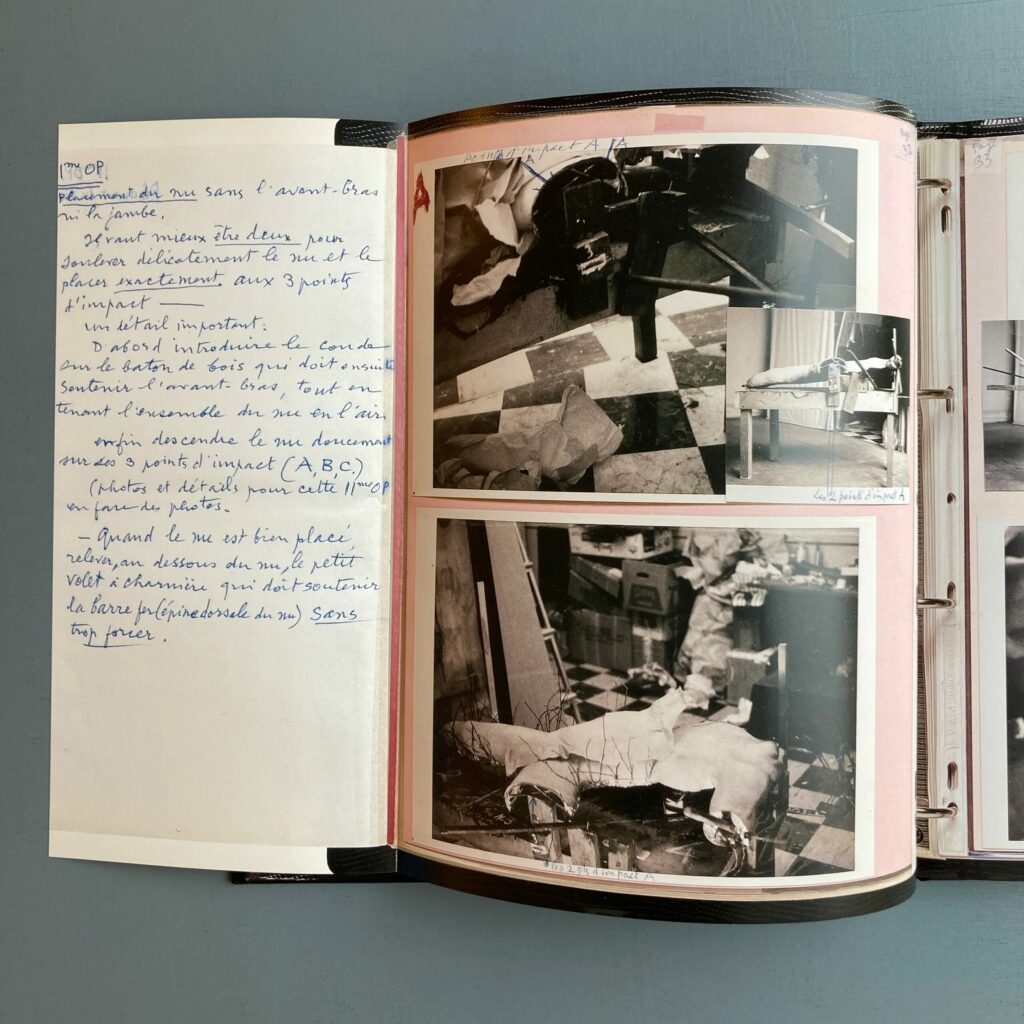 11me OP
placement du nu sans l'avant-bras
ni la jambe.
Il vaut mieux être deux pour
soulever délicatement le nu et le
placer exactement aux 3 points
d'impact —
un détail important:
D'abord introduire le coude
sur le baton de bois qui doit ensuite
soutenir l'avant-bras, tout en
tenant l'ensemble du nu en l'air
enfin descendre le nu doucement
sur ses 3 points d'impact (A, B, C.)
(photos et détails pour cette 11me OP
en faire des photos.
— Quand le nu est bien placé,
relever, au dessous du nu, le petit
volet à charnière qui doit soutenir
la barre fer (épine dorsale du nu) Sans
trop forcer.
points d'impact A A
A
A
les 2 points d'impact A
les 2 pts d'impact A
pag
33